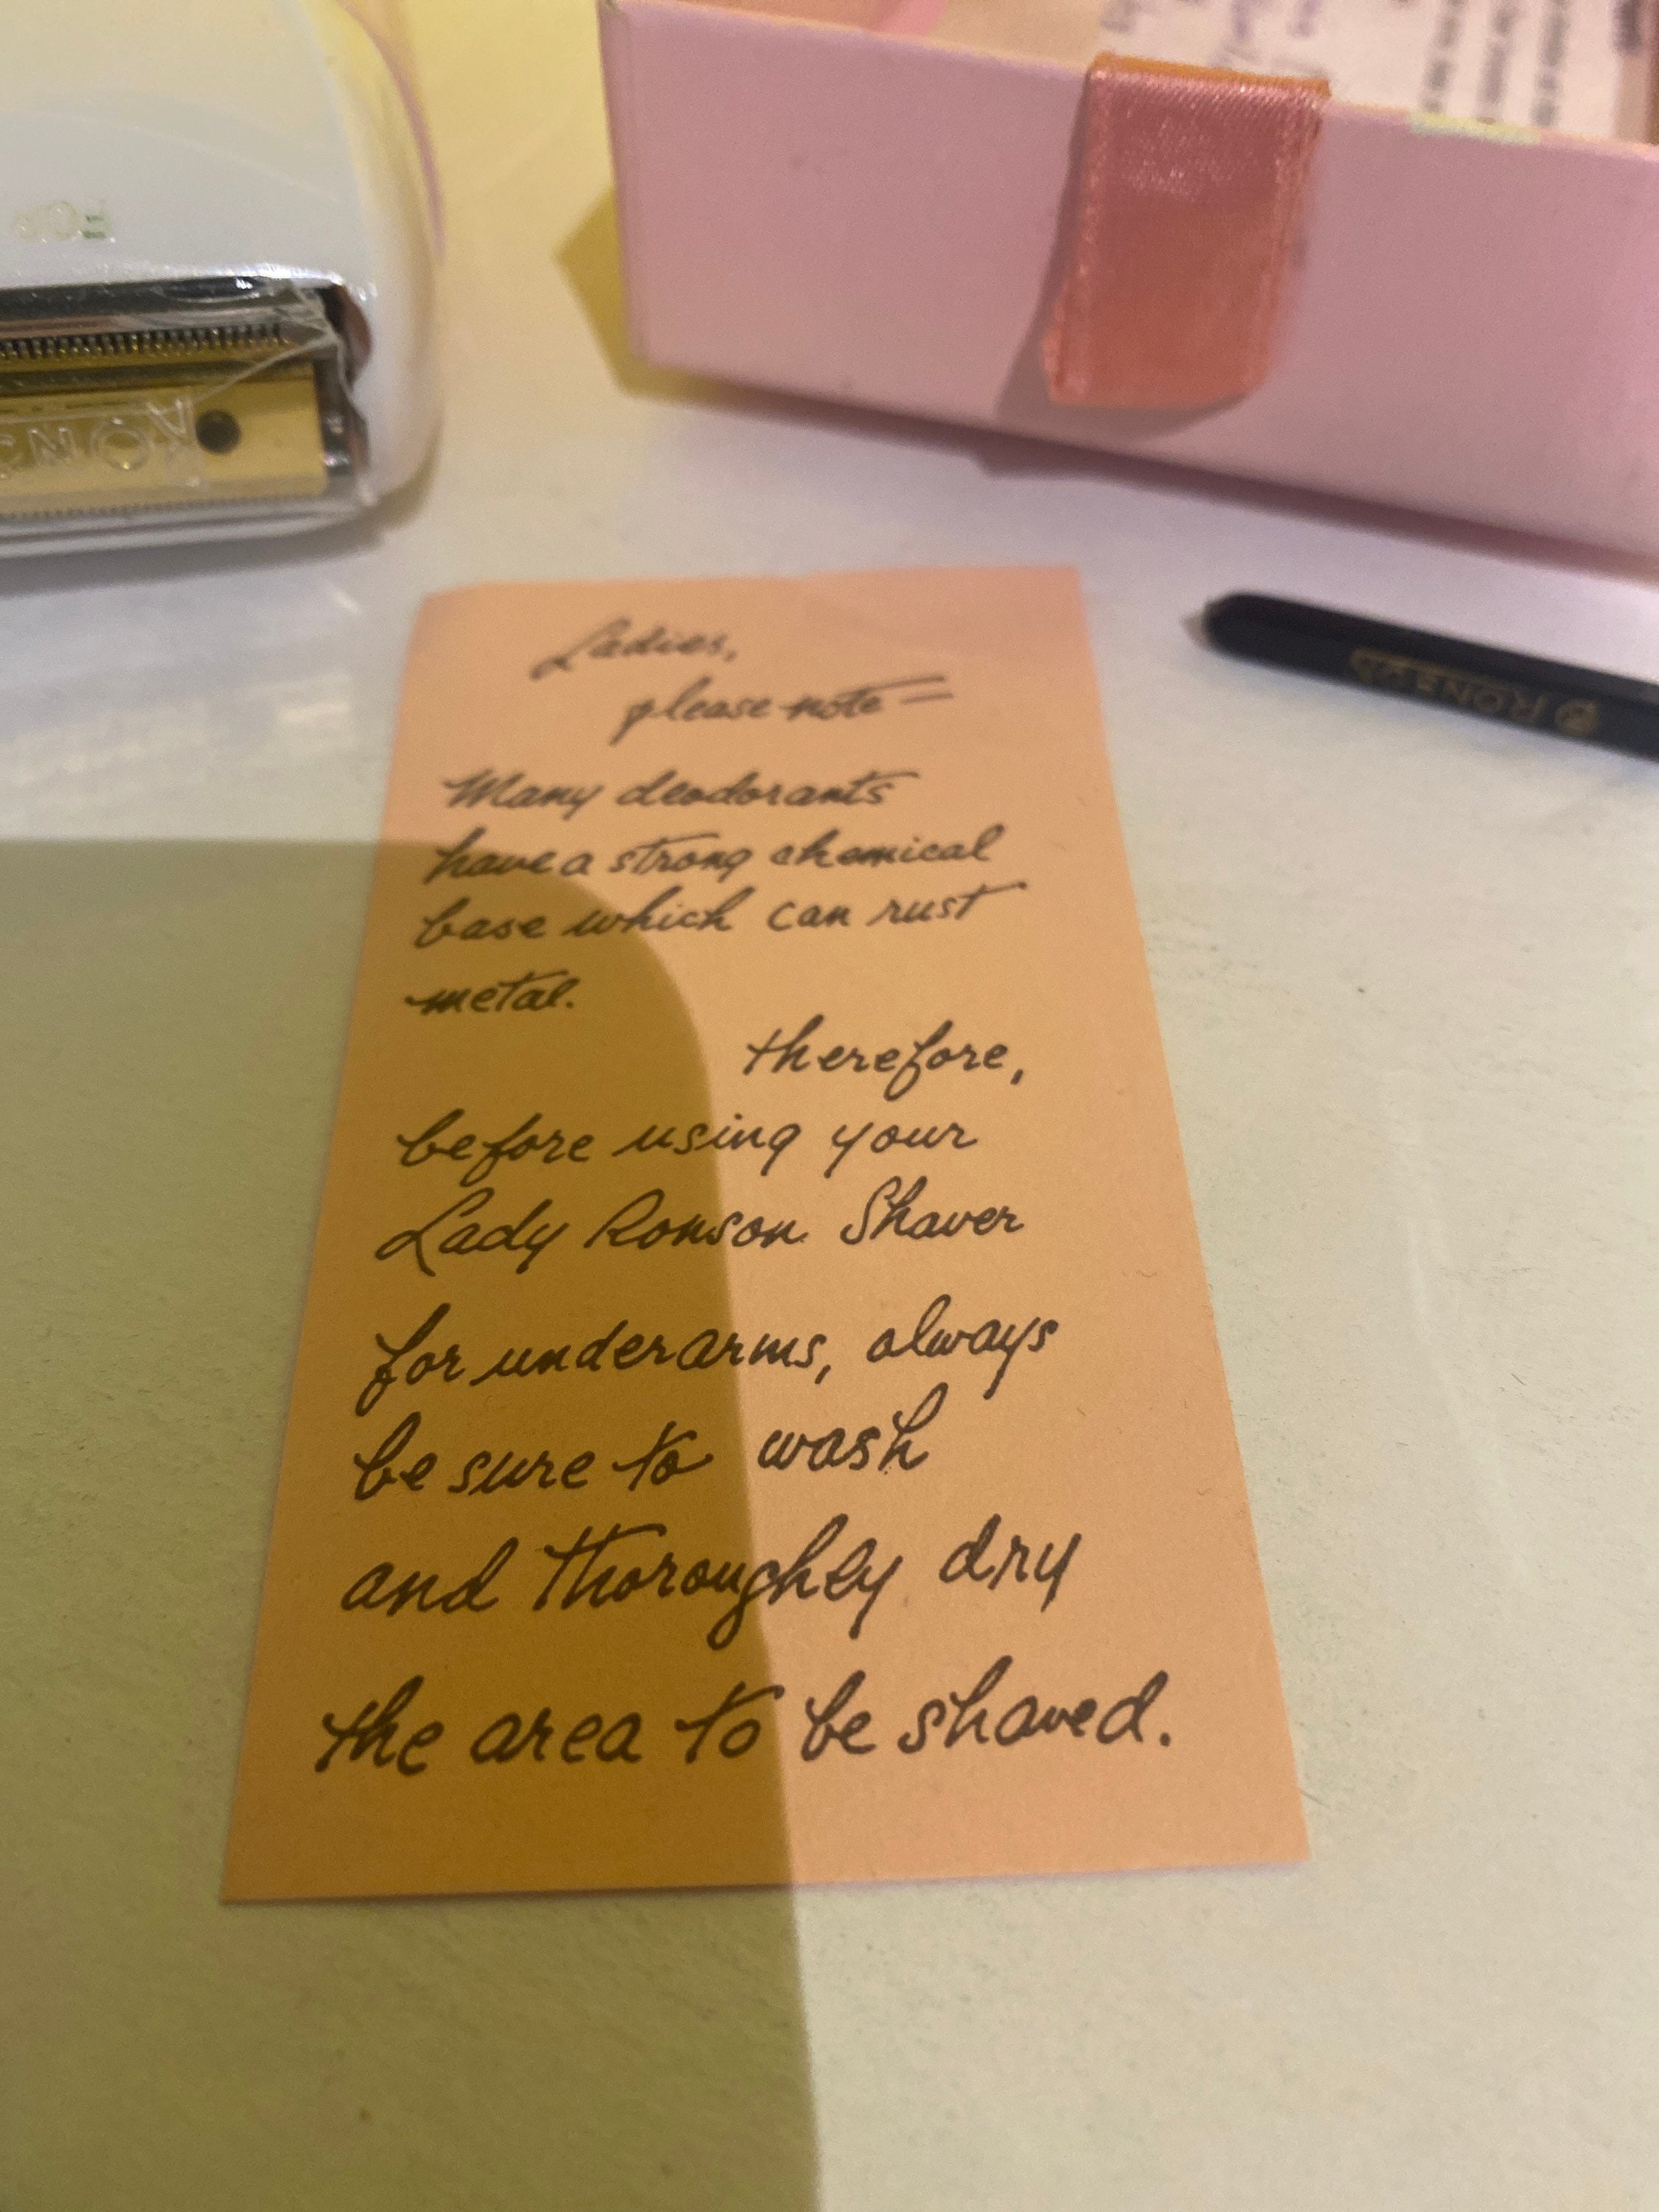 Ladies,
please note =
Many deodorants
have a strong chemical
base which can rust
metal.
therefore,
before using your
Lady Ronson Shaver
for underarms, always
be sure to wash
and thoroughly dry
the area to be shaved.
RONSON